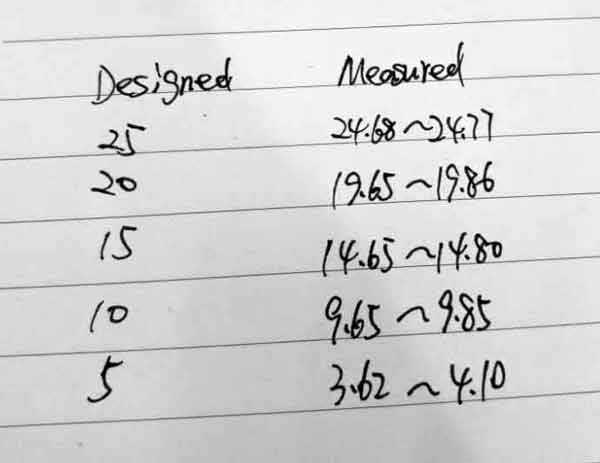 Designed Measured
25 24.68~24.77
20 19.65~19.86
15 14.65~14.80
10 9.65~9.85
5 3.62~4.10